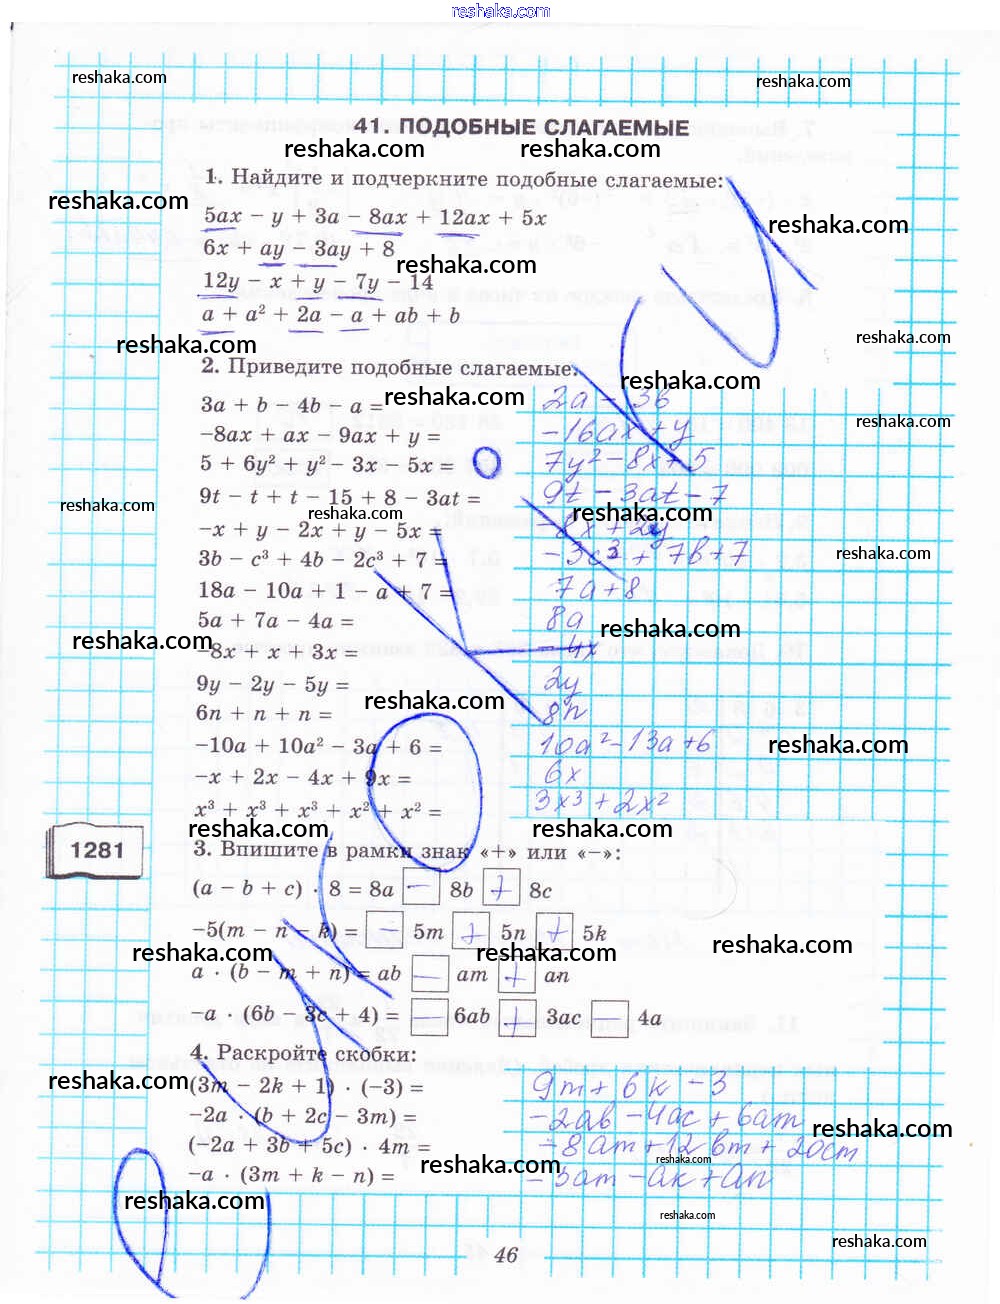 reshaka.com
reshaka.com
reshaka.com
41. ПОДОБНЫЕ СЛАГАЕМЫЕ
reshaka.com reshaka.com
1. Найдите и подчеркните подобные слагаемые:
reshaka.com
5ax − y + 3a − 8ax + 12ax + 5x
reshaka.com
6x + ay − 3ay + 8
reshaka.com
12y − x + y − 7y − 14
a + a² + 2a − a + ab + b
reshaka.com
reshaka.com
2. Приведите подобные слагаемые:
reshaka.com
3a + b − 4b − a = 2a − 3b
reshaka.com
−8ax + ax − 9ax + y = −16ax + y
reshaka.com
5 + 6y² + y² − 3x − 5x = 7y² − 8x + 5
9t − t + t − 15 + 8 − 3at = 9t − 3at − 7
reshaka.com reshaka.com reshaka.com
−x + y − 2x + y − 5x = 8x + 2y
3b − c³ + 4b − 2c³ + 7 = −3c³ + 7b + 7
reshaka.com
18a − 10a + 1 − a + 7 = 7a + 8
5a + 7a − 4a = 8a
reshaka.com reshaka.com
−8x + x + 3x = −4x
9y − 2y − 5y = 2y
reshaka.com
6n + n + n = 8n
−10a + 10a² − 3a + 6 = 10a² − 13a + 6
reshaka.com
−x + 2x − 4x + 9x = 6x
x³ + x³ + x³ + x² + x² = 3x³ + 2x²
reshaka.com reshaka.com
1281
3. Впишите в рамки знак «+» или «−»:
(a − b + c) · 8 = 8a − 8b + 8c
−5(m − n − k) = − 5m + 5n + 5k
reshaka.com reshaka.com reshaka.com
a · (b − m + n) = ab − am + an
−a · (6b − 3c + 4) = − 6ab + 3ac − 4a
4. Раскройте скобки:
reshaka.com
(3m − 2k + 1) · (−3) = 9m + 6k − 3
−2a · (b + 2c − 3m) = −2ab − 4ac + 6am
reshaka.com
(−2a + 3b + 5c) · 4m = −8am + 12bm + 20cm
reshaka.com reshaka.com
−a · (3m + k − n) = −3am − ak + an
reshaka.com
reshaka.com
reshaka.com
46